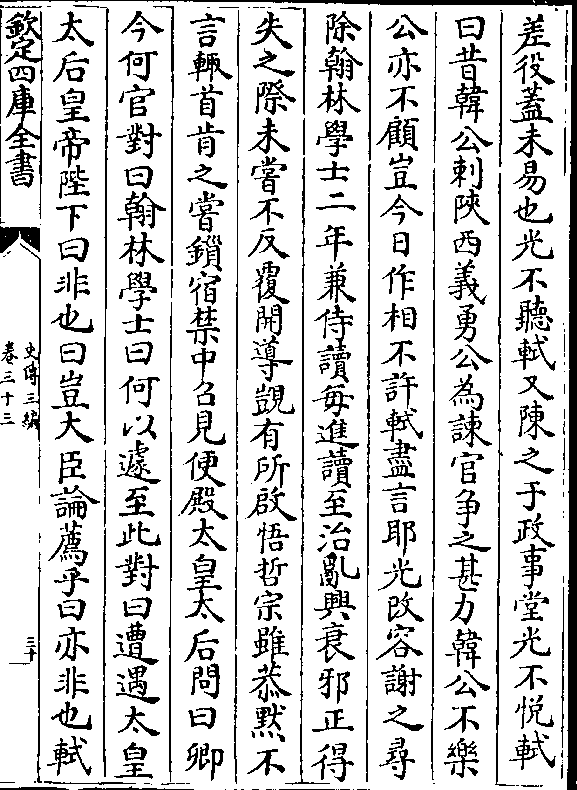 差役蓋未易也光不聽軾又陳之于政事堂光不悦軾
曰昔韓公刺陜西義勇公為諫官争之甚力韓公不樂
公亦不顧豈今日作相不許軾盡言耶光改容謝之尋
除翰林學士二年兼侍讀每進讀至治亂興衰邪正得
失之際未嘗不反覆開導覬有所啟悟哲宗雖恭默不
言輒首肯之嘗鎖宿禁中召見便殿太皇太后問曰卿
今何官對曰翰林學士曰何以遽至此對曰遭遇太皇
太后皇帝陛下曰非也曰豈大臣論薦乎曰亦非也軾
欽定四庫全書
史傳三編
卷三十三
三十